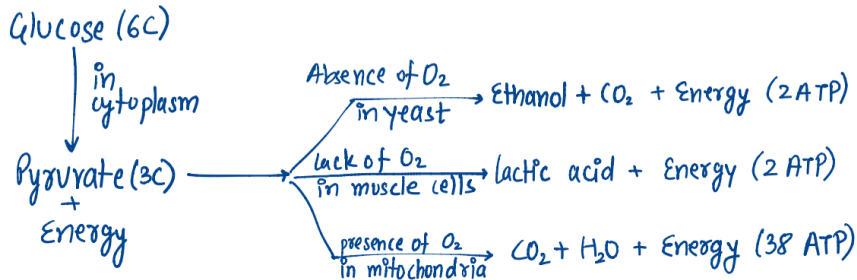 Glucose (6C)
in
cytoplasm
Pyruvate (3C)
+
Energy
Absence of O₂
in yeast
Ethanol + CO₂ + Energy (2 ATP)
lack of O₂
in muscle cells
lactic acid + Energy (2 ATP)
presence of O₂
in mitochondria
CO₂ + H₂O + Energy (38 ATP)